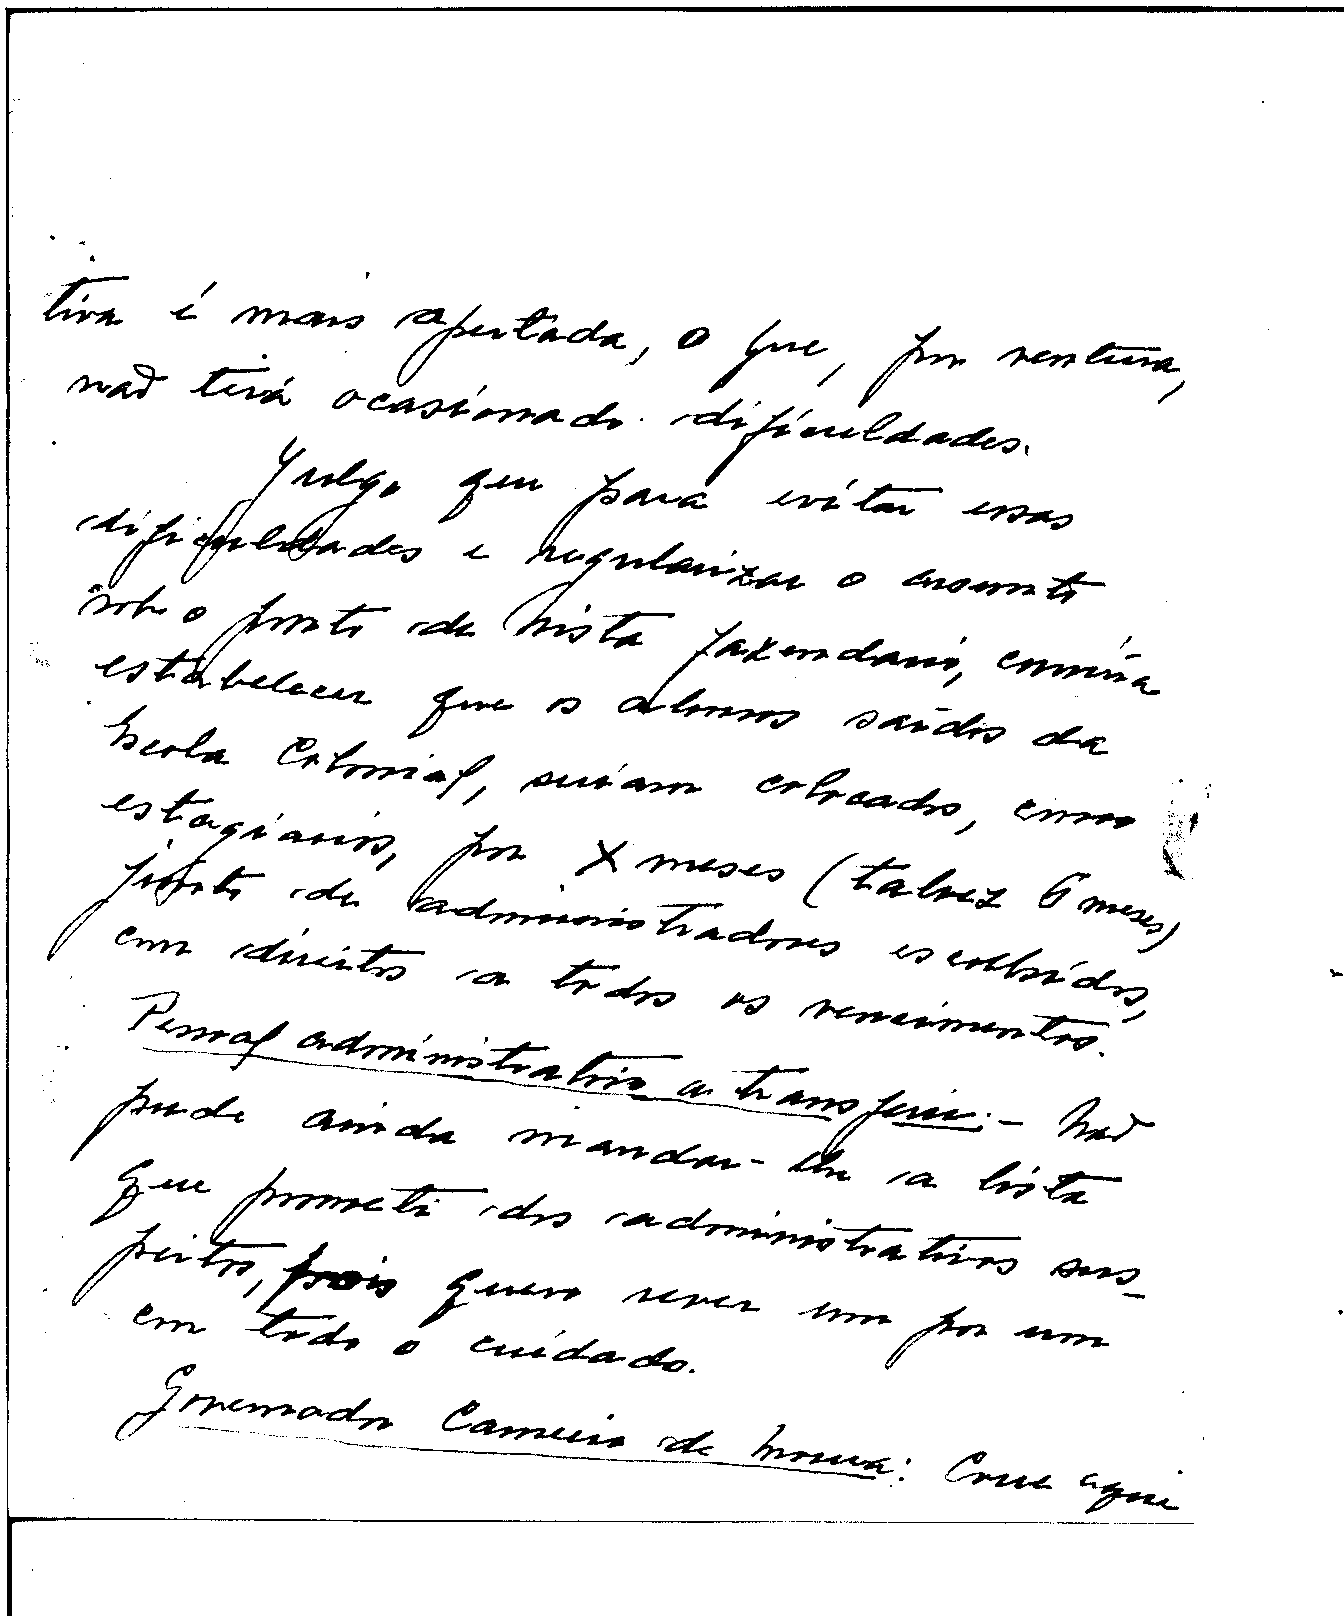 tiva é mais apertada, o que, por ventura,
não terá ocasionado dificuldades.
Julgo que para evitar essas
dificuldades e regularizar o assunto
sob o ponto de vista fazendario, convira
estabelecer que os alunos saídos da
Escola Colonial, seriam colocados, como
estagiarios, por X meses (talvez 6 meses)
junto de administradores escolhidos,
com direitos a todos os vencimentos.
Pessoal administrativo a transferir: - Não
pude ainda mandar-lhe a lista
que prometi dos administrativos sus-
peitos, pois quero rever um por um
com todo o cuidado.
Governador Carneiro de Moura: Corre aqui